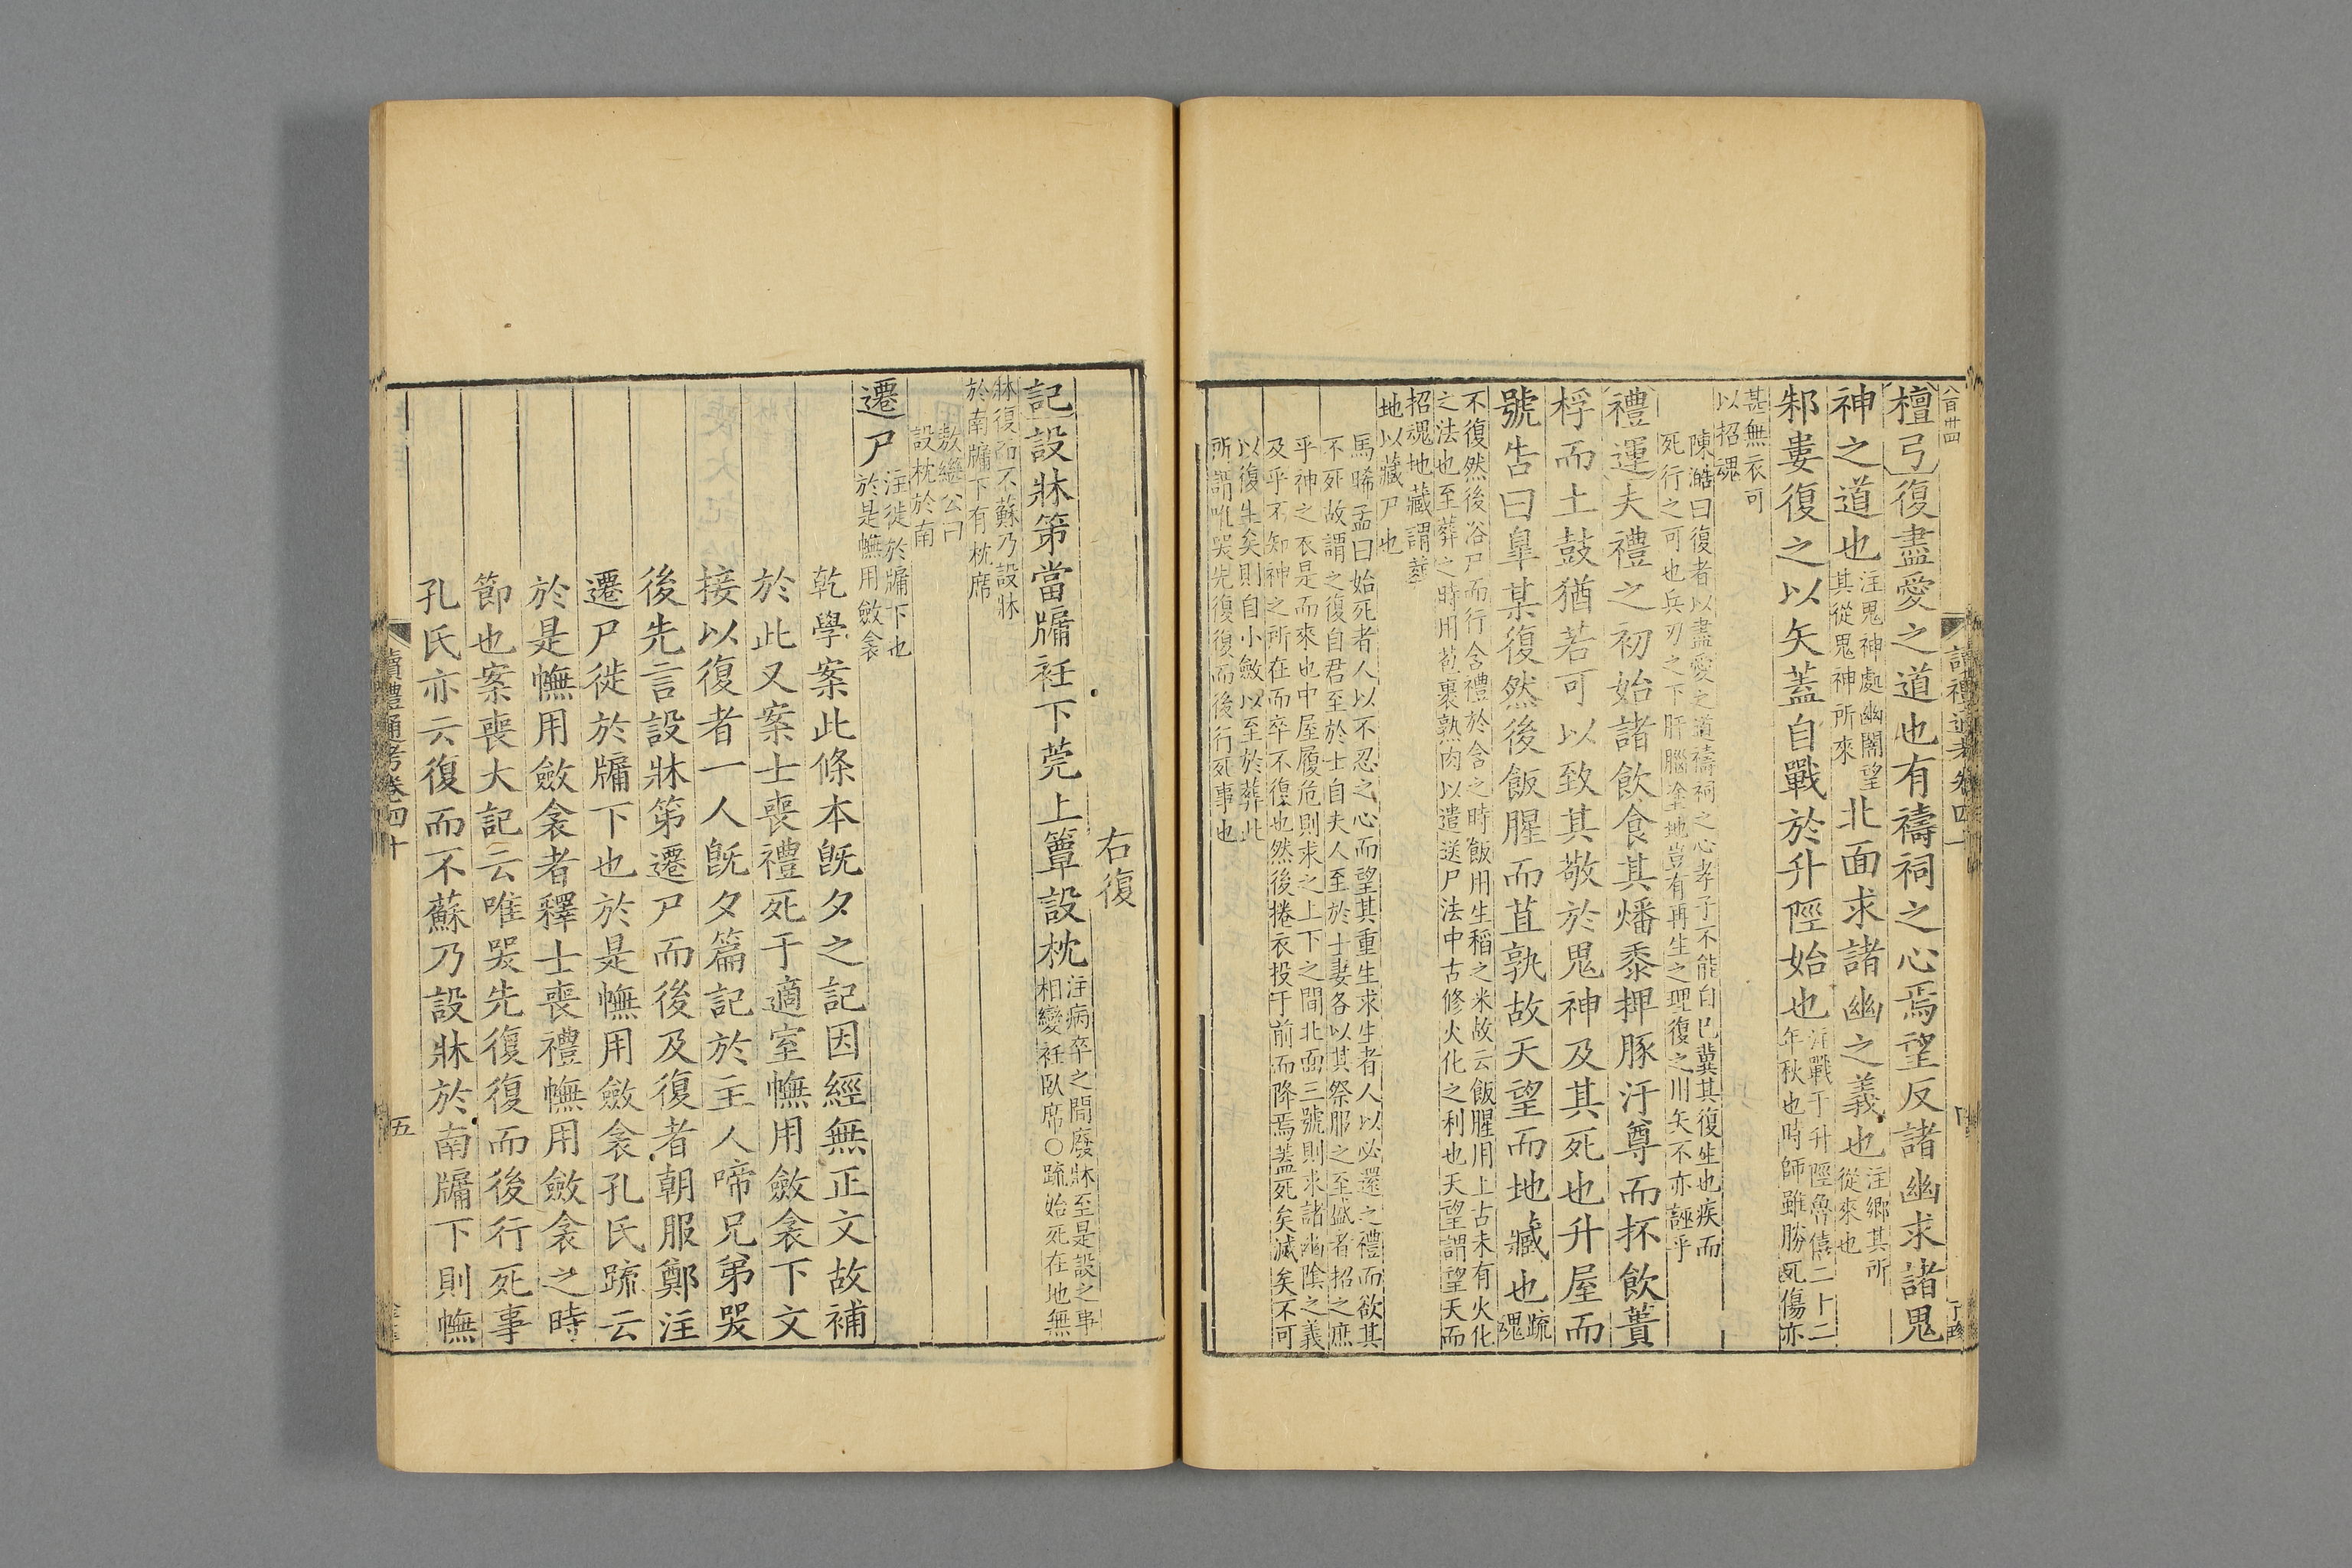 八百卅四
檀弓復盡愛之道也有禱祠之心焉望反諸幽求諸鬼
神之道也
注鬼神處幽闇望
其從鬼神所來
北面求諸幽之義也
注鄉其所
從來也
邾婁復之以矢蓋自戰於升陘始也
注戰于升陘魯僖二十二
年秋也時師雖勝死傷亦
甚無衣可
以招魂
陳澔曰復者以盡愛之道禱祠之心孝子不能自已冀其復生也疾而
死行之可也兵刃之下肝腦塗地豈有再生之理復之用矢不亦誣乎
禮運夫禮之初始諸飲食其燔黍捭豚汙尊而抔飲蕢
桴而土鼓猶若可以致其敬於鬼神及其死也升屋而
號告曰臯某復然後飯腥而苴孰故天望而地藏也
疏
魂
不復然後浴尸而行含禮於含之時飯用生稻之米故云飯腥用上古未有火化
之法也至葬之時用苞裹熟肉以遣送尸法中古修火化之利也天望謂望天而
招魂地藏謂葬
地以藏尸也
馬晞孟曰始死者人以不忍之心而望其重生求生者人以必還之禮而欲其
不死故謂之復自君至於士自夫人至於士妻各以其祭服之至盛者招之庶
乎神之衣是而來也中屋履危則求之上下之間北面三號則求諸幽陰之義
及乎不知神之所在而卒不復也然後捲衣投于前而降焉蓋死矣滅矣不可
以復生矣則自小斂以至於葬此
所謂唯哭先復復而後行死事也
右復
記設牀笫當牖衽下莞上簟設枕
注病卒之間廢牀至是設之事
相變衽臥席○疏始死在地無
牀復而不蘇乃設牀
於南牖下有枕席
敖繼公曰
設枕於南
遷尸
注徙於牖下也
於是幠用斂衾
乾學案此條本旣夕之記因經無正文故補
於此又案士喪禮死于適室幠用斂衾下文
接以復者一人旣夕篇記於主人啼兄弟哭
後先言設牀笫遷尸而後及復者朝服鄭注
遷尸徙於牖下也於是幠用斂衾孔氏疏云
於是幠用斂衾者釋士喪禮幠用斂衾之時
節也案喪大記云唯哭先復復而後行死事
孔氏亦云復而不蘇乃設牀於南牖下則幠
讀禮通考卷四十
五